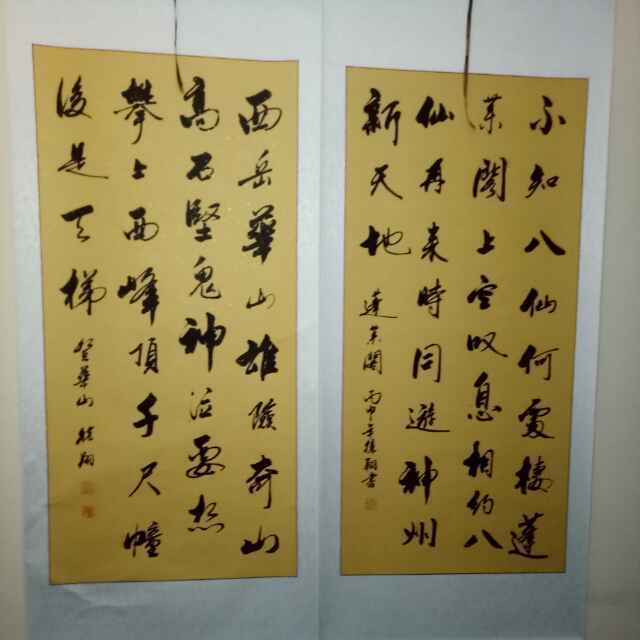 不知八仙何處棲蓬
萊閣上空叹息相约八
仙再来時同遊神州
新天地 蓬萊閣 丙申
西岳華山雄險奇山
高石堅鬼神泣要想
攀上西峰頂千尺幢
後是天梯 登華山